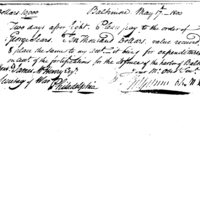 Dollars 10,000 Baltimore May 17th 1800
Two days after sight, Please pay to the order of
George Sears. Ten Thousand Dollars value received
& place the same to my acct it being for expenditures
on acct of the fortifications for the defence of the harbour of Balt
James McHenry Esqr
Secretary of War
Philadelphia